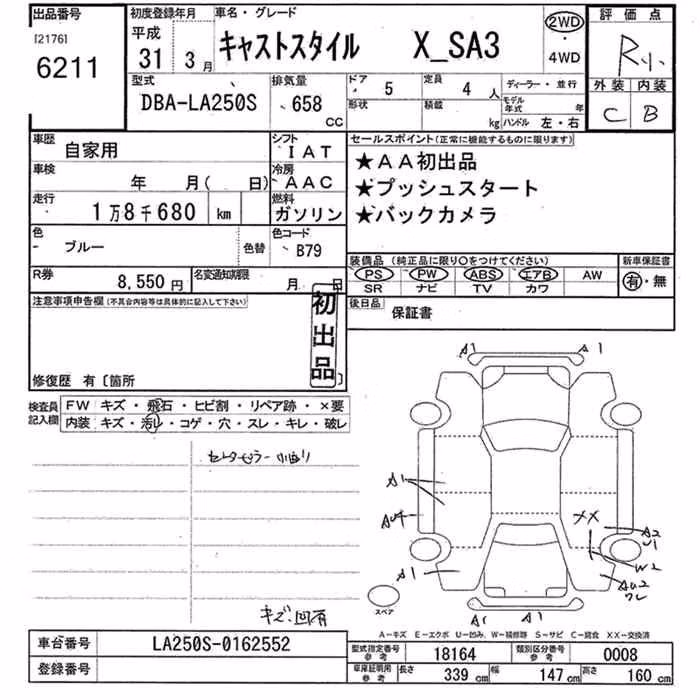 出品番号 初度登録年月 車名・グレード 評価点
[2176] 平成 2WD
6211 31年 3月 キャストスタイル X_SA3 ・ R小
4WD
型式 排気量 ドア 5 定員 4人 ディーラー・並行 外装 内装
DBA-LA250S 658 CC 形状 積載 kg モデル年式 年 C B
ハンドル 左・右
車歴 自家用 シフト IAT セールスポイント(正常に機能するものに限ります)
車検 年 月( 日) 冷房 AAC ★AA初出品
★プッシュスタート
走行 1万8千680 km 燃料 ガソリン ★バックカメラ
色 ブルー 色替 色コード B79
装備品 (純正品に限り○をつけてください) 新車保証書
R券 8,550円 名変通知期限 月 日 PS PW ABS エアB AW 有・無
SR ナビ TV カワ
注意事項申告欄(不具合内容等は具体的に記入して下さい) 初出品 後日品 保証書
修復歴 有〔箇所 〕
A1 A1
検査員記入欄 FW キズ・飛石・ヒビ割・リペア跡・×要
内装 キズ・汚レ・コゲ・穴・スレ・キレ・破レ
A1
XX
A2
U1
W2
A1
AU2
スペア
A1 A1
キズ.凹有
A−キズ E−エクボ U−凹み W−補修跡 S−サビ C−腐食 XX−交換済
車台番号 LA250S-0162552 型式指定番号 参考 18164 類別区分番号 参考 0008
登録番号 車庫証明用 参考 長さ 339 cm 幅 147 cm 高さ 160 cm